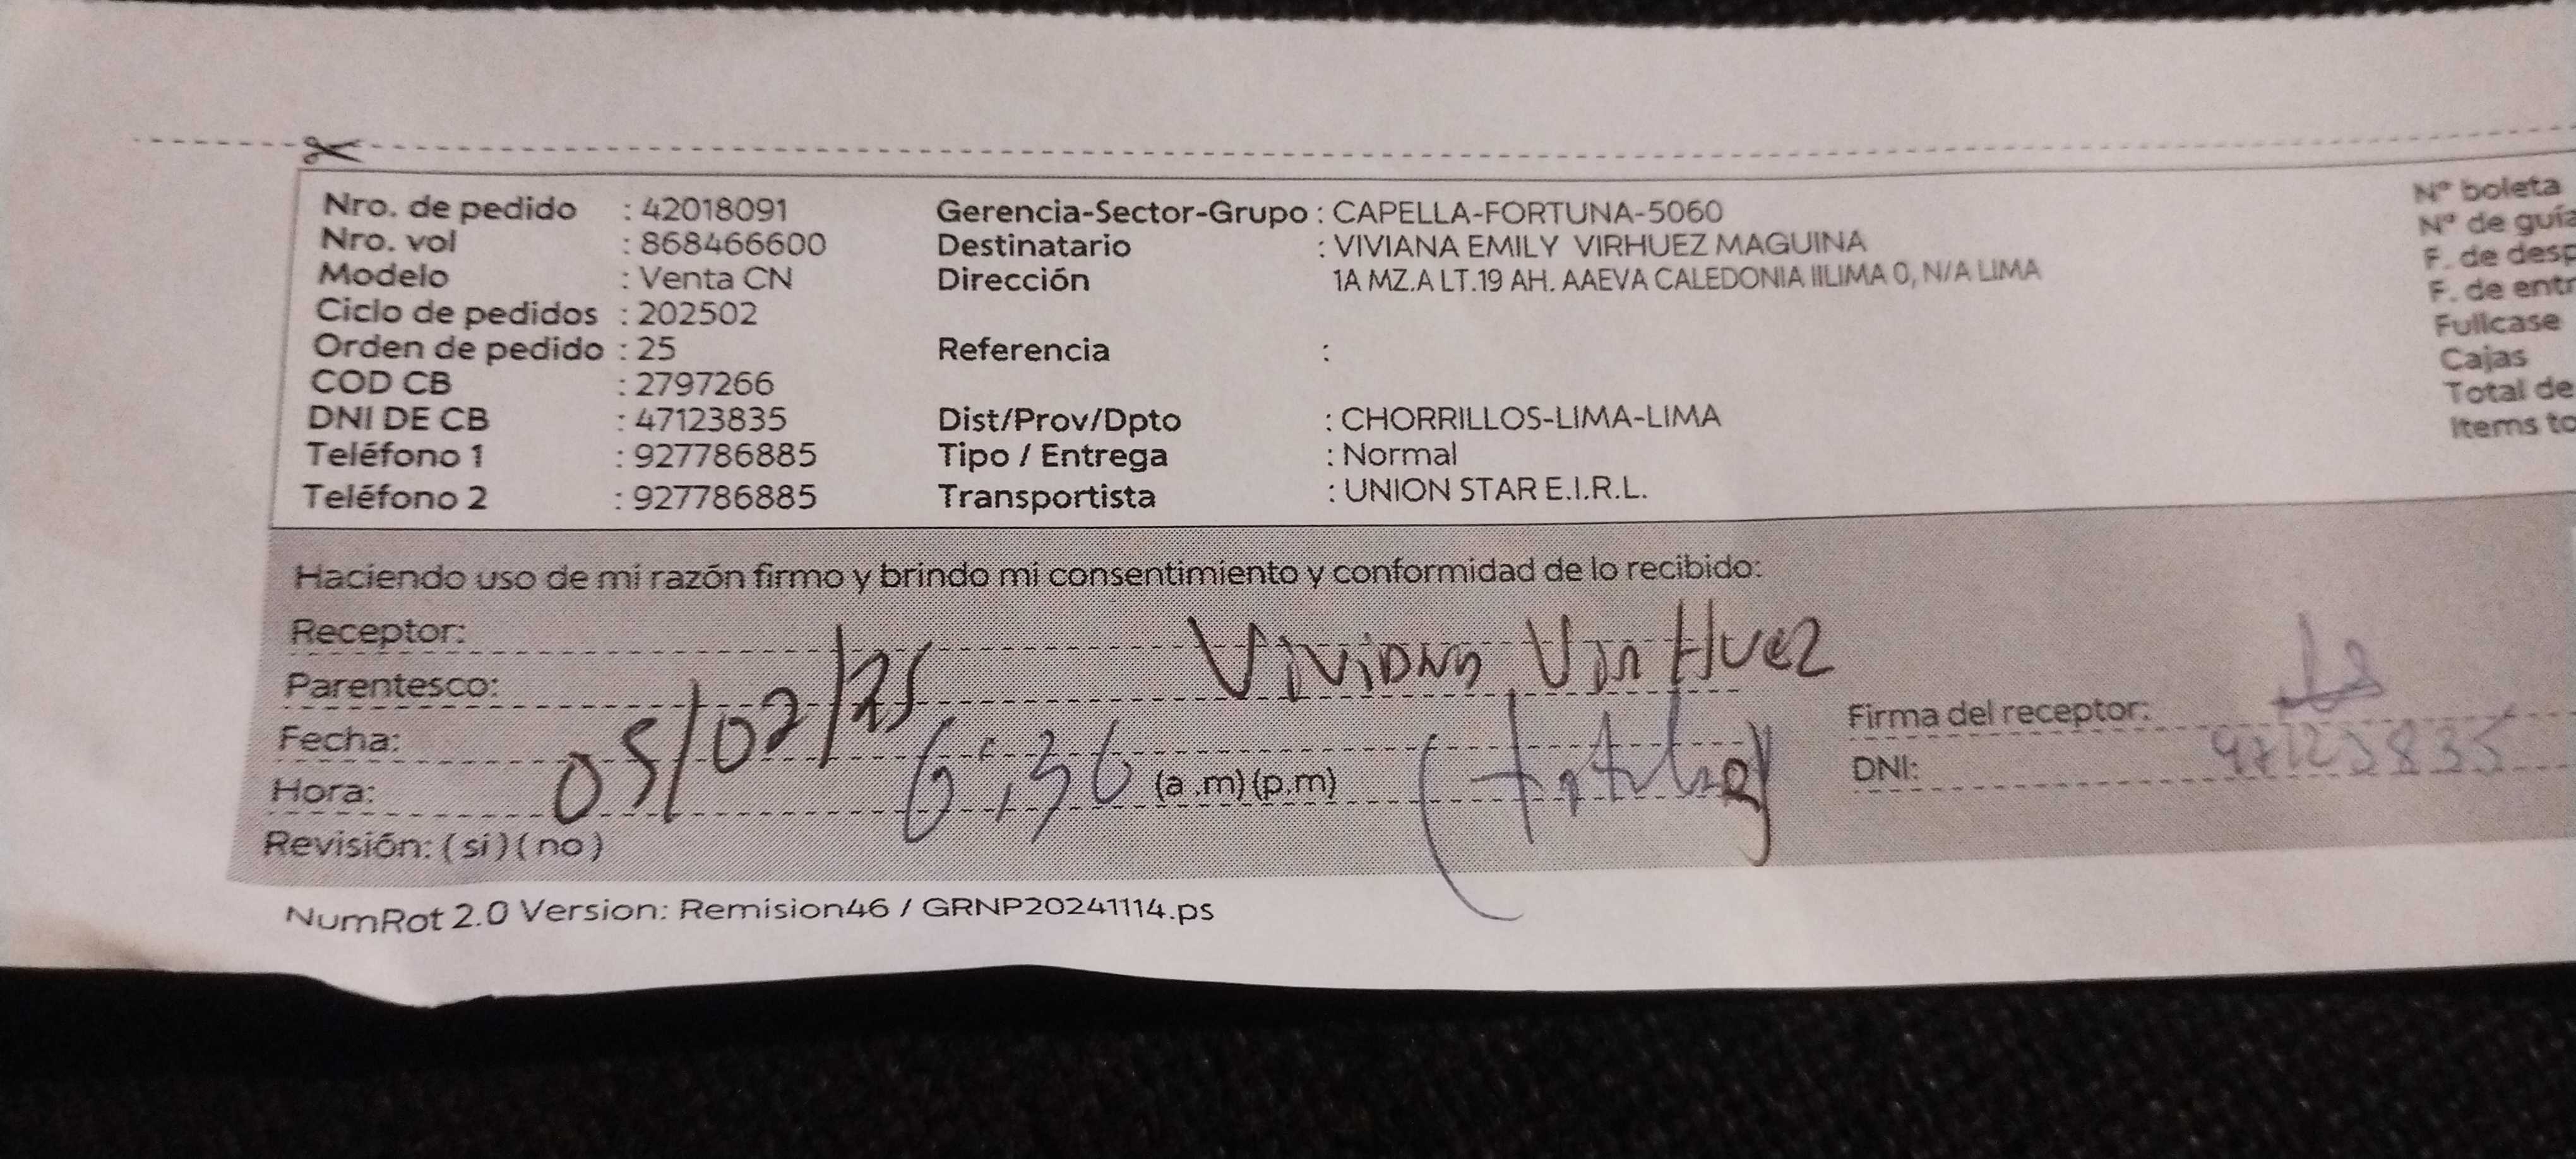 Nro. de pedido : 42018091 Gerencia-Sector-Grupo : CAPELLA-FORTUNA-5060 N° boleta
Nro. vol : 868466600 Destinatario : VIVIANA EMILY VIRHUEZ MAGUINA N° de guía
Modelo : Venta CN Dirección 1A MZ.A LT.19 AH. AAEVA CALEDONIA IILIMA 0, N/A LIMA F. de desp
Ciclo de pedidos : 202502 F. de entr
Orden de pedido : 25 Referencia : Fullcase
COD CB : 2797266 Cajas
DNI DE CB : 47123835 Dist/Prov/Dpto : CHORRILLOS-LIMA-LIMA Total de
Teléfono 1 : 927786885 Tipo / Entrega : Normal Items to
Teléfono 2 : 927786885 Transportista : UNION STAR E.I.R.L.
Haciendo uso de mi razón firmo y brindo mi consentimiento y conformidad de lo recibido:
Receptor: Viviana VirHuez
Parentesco:
Fecha: 05/02/25 Firma del receptor:
Hora: 6:36 (a .m) (p.m) (titular) DNI: 47123835
Revisión: ( si ) ( no )
NumRot 2.0 Version: Remision46 / GRNP20241114.ps